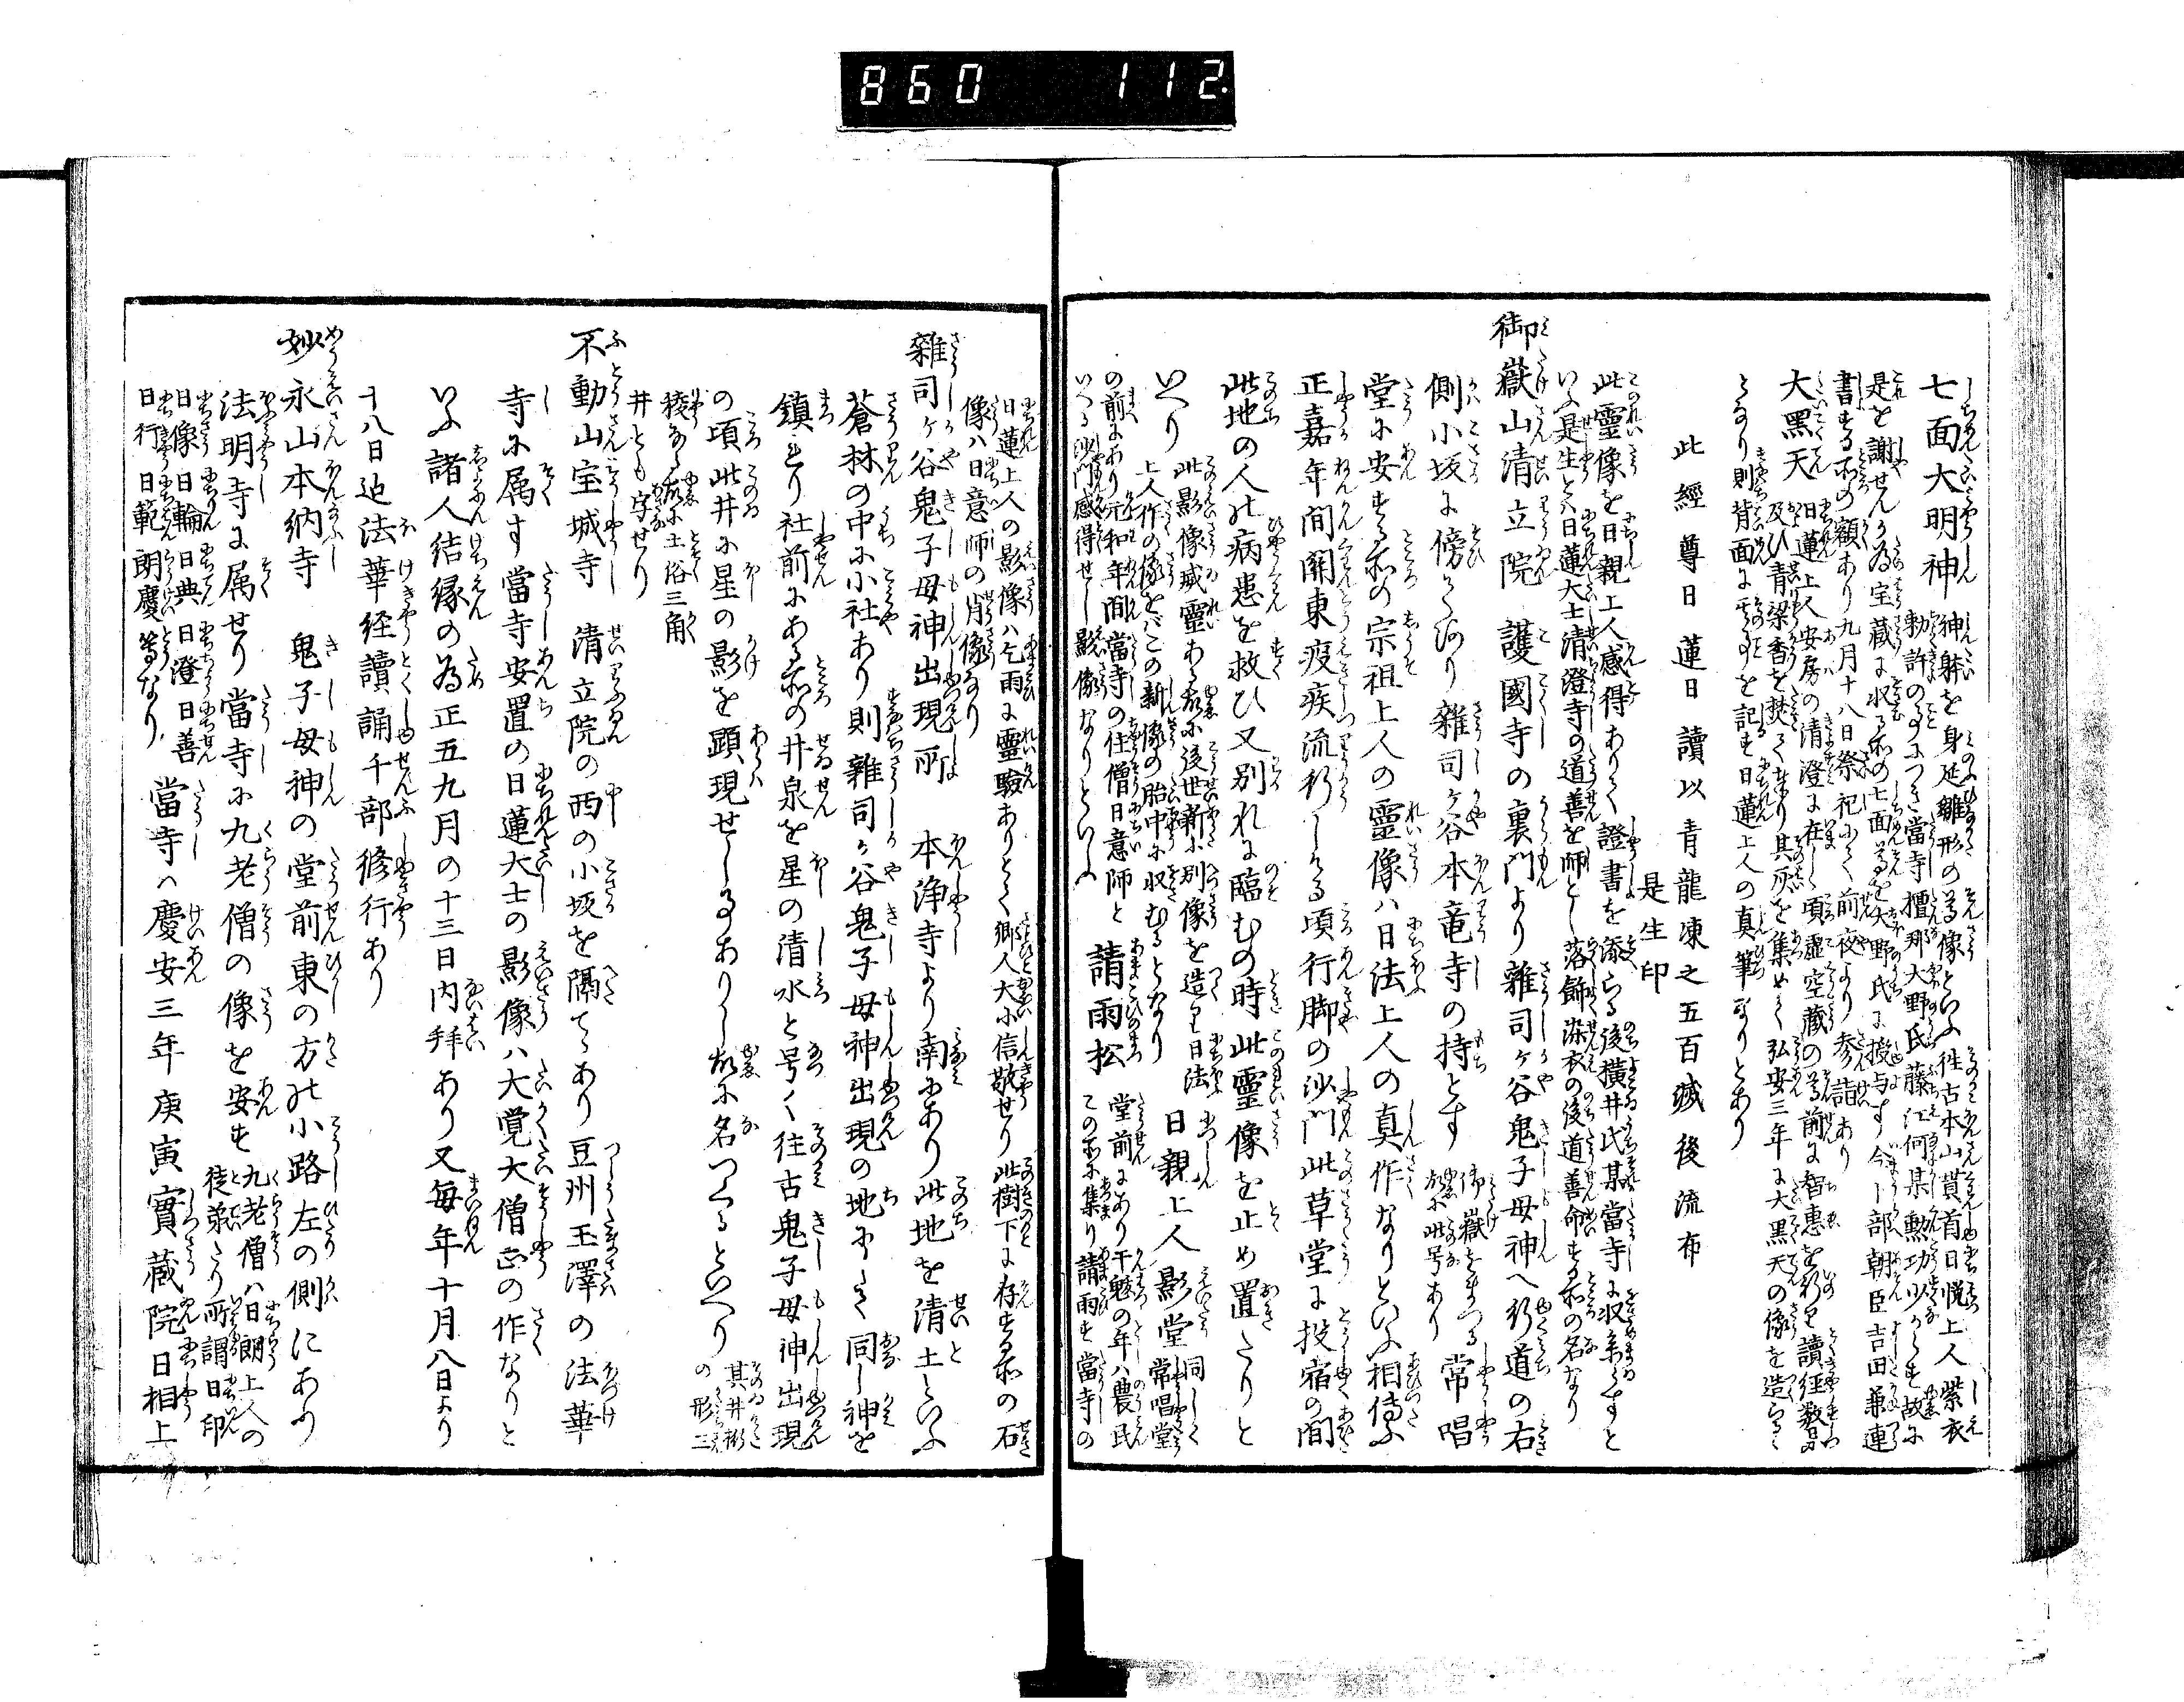 860 112.
七面大明神 神躰を身延雛形の尊像といふ 往古本山貫首日悦上人紫衣
勅許の事につき當寺檀那大野氏藤江何某勲功少からす故に
是を謝せんか為宝蔵に収る所の七面尊を大野氏に授与す今卜部朝臣吉田兼連
書する所の額あり九月十八日祭祀にして前夜より参詣あり
大黒天 日蓮上人安房の清澄に在し頃虚空蔵の尊前に智恵をいのり讀経数日
及ひ青梁香を焚て其灰を集めて弘安三年に大黒天の像を造らるゝ
となり則背面に其事を記す日蓮上人の真筆なりとあり
此經尊日蓮日讀以青龍凍之五百歳後流布
是生印
此靈像を日親上人感得ありて證書を添らる後横井氏某當寺に収
いふ是生と八日蓮大士清澄寺の道善を師とし落飾染衣の後道善命する所の名なり
御嶽山清立院 護國寺の裏門より雜司ヶ谷鬼子母神へ行道の右
側小坂に傍てあり雜司ヶ谷本竜寺の持とす 御嶽をまつる故に此号あり 常唱
堂に安する所の宗祖上人の靈像ハ日法上人の真作なりといふ相傳ふ
正嘉年間關東疫疾流行しける頃行脚の沙門此草堂に投宿の間
此地の人の病患を救ひ又別れに臨むの時此靈像を止め置たりと
いへり 此影像威靈ある故に後世新に別像を造り日法
上人作の像をバこの新像の胎中に収むるとなり 日親上人影堂 同しく常唱堂
の前にあり元和年間當寺の住僧日意師と
いへる沙門感得せし影像なりといふ 請雨松 堂前にあり干魃の年ハ農民
この所に集り請雨す當寺の
日蓮上人の影像ハ乞雨に靈驗ありとて郷人大に信敬せり此樹下に存する所の石
像ハ日意師の肖像なり
雜司ヶ谷鬼子母神出現所 本浄寺より南にあり此地を清土といふ
蒼林の中に小社あり則雜司ヶ谷鬼子母神出現の地にして同し神を
鎮まり社前にある所の井泉を星の清水と号く往古鬼子母神出現
の頃此井に星の影を顕現せし事ありし故に名つくるといへり 其井桁の形三
稜なる故に土俗三角
井とも字せり
不動山宝城寺 清立院の西の小坂を隔てゝあり豆州玉澤の法華
寺に属す當寺安置の日蓮大士の影像ハ大覚大僧正の作なりと
いふ諸人結縁の為正五九月の十三日内拜あり又毎年十月八日より
十八日迠法華経讀誦千部修行あり
妙永山本納寺 鬼子母神の堂前東の方の小路左の側にあり
法明寺に属せり當寺に九老僧の像を安す 九老僧ハ日朗上人の
徒弟たり所謂日印
日像日輪日典日澄日善
日行日範朗慶等なり 當寺ハ慶安三年庚寅實蔵院日相上